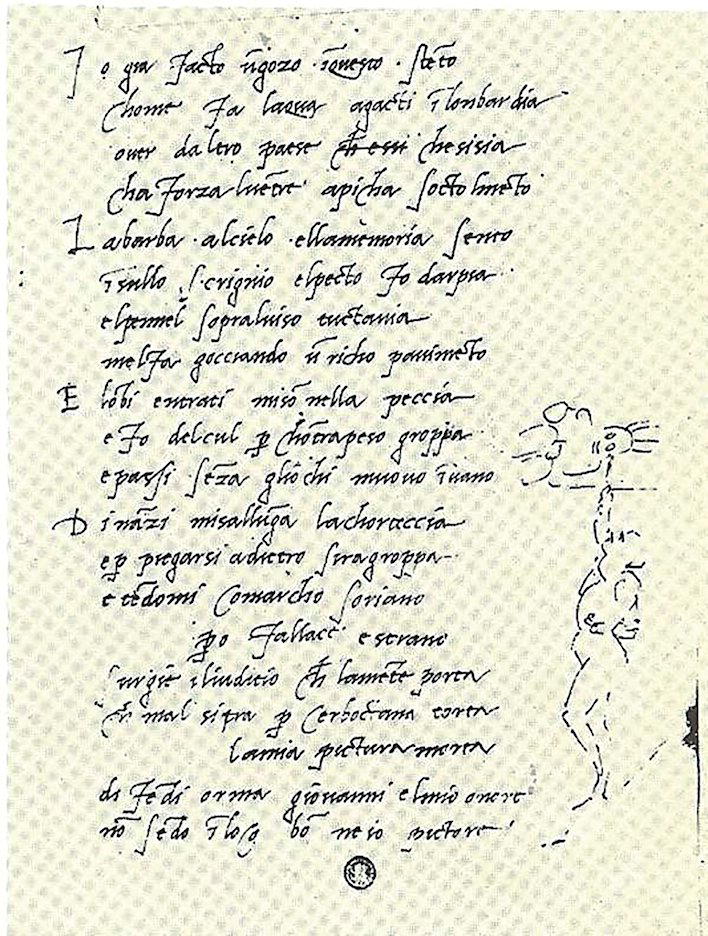 I o gia facto ūgozo īquesto stēto
chome fa laqua agacti ī lonbardia
over daltro paese ch essi chesisia
cha forza lvētre apicha socto lmēto
L abarba alcielo ellamemoria sento
īsullo scrignio elpecto fo darpia
elpennel sopralviso tuctavia
melfa gocciando ū richo pavimēto
E lōbi entrati misō nella peccia
e fo delcul p̱ chōtrapeso groppa
e passi sēza gliochi muovo īvano
D ināzi misallūga lachorteccia
e p̱ piegarsi adietro siragroppa
e tēdomi comarcho soriano
p̱o fallace e strano
surgie iliuditio ch̄ lamēte porta
ch̄ mal sitra p̱ cerboctana torta
lamia pictura morta
di fēdi orma giovanni elmio onore
nō sēdo īloco bō ne io pictore